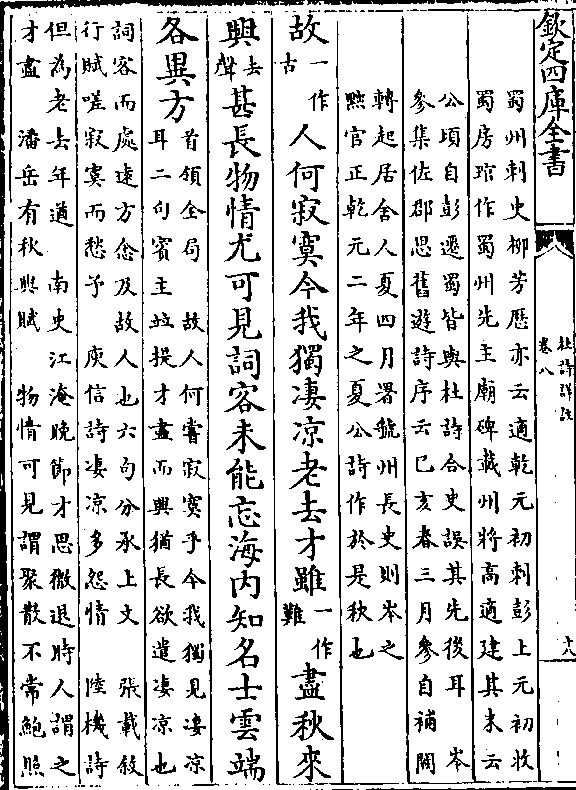 欽定四庫全書
杜詩詳註
卷八
十八
蜀州刺史柳芳歴亦云適乾元初刺彭上元初牧
蜀房琯作蜀州先主廟碑載州將高適建其末云
公頃自彭遷蜀皆與杜詩合史誤其先後耳　岑
參集佐郡思舊遊詩序云已亥春三月參自補闕
轉起居舍人夏四月署虢州長史則岑之
黙官正乾元二年之夏公詩作於是秋也
故一作古人何寂寞今我獨凄凉老去才雖一作難盡秋來
興去聲甚長物情尤可見詞客未能忘海内知名士雲端
各異方首領全局　故人何嘗寂寞乎今我獨見凄凉
耳二句賓主竝提才盡而興猶長欲遣凄凉也
詞客而處逺方念及故人也六句分承上文　張載敘
行賦嗟寂寞而愁予　庾信詩凄凉多怨情　陸機詩
但為老去年遒　南史江淹晚節才思微退時人謂之
才盡　潘岳有秋興賦　物情可見謂聚散不常鮑照